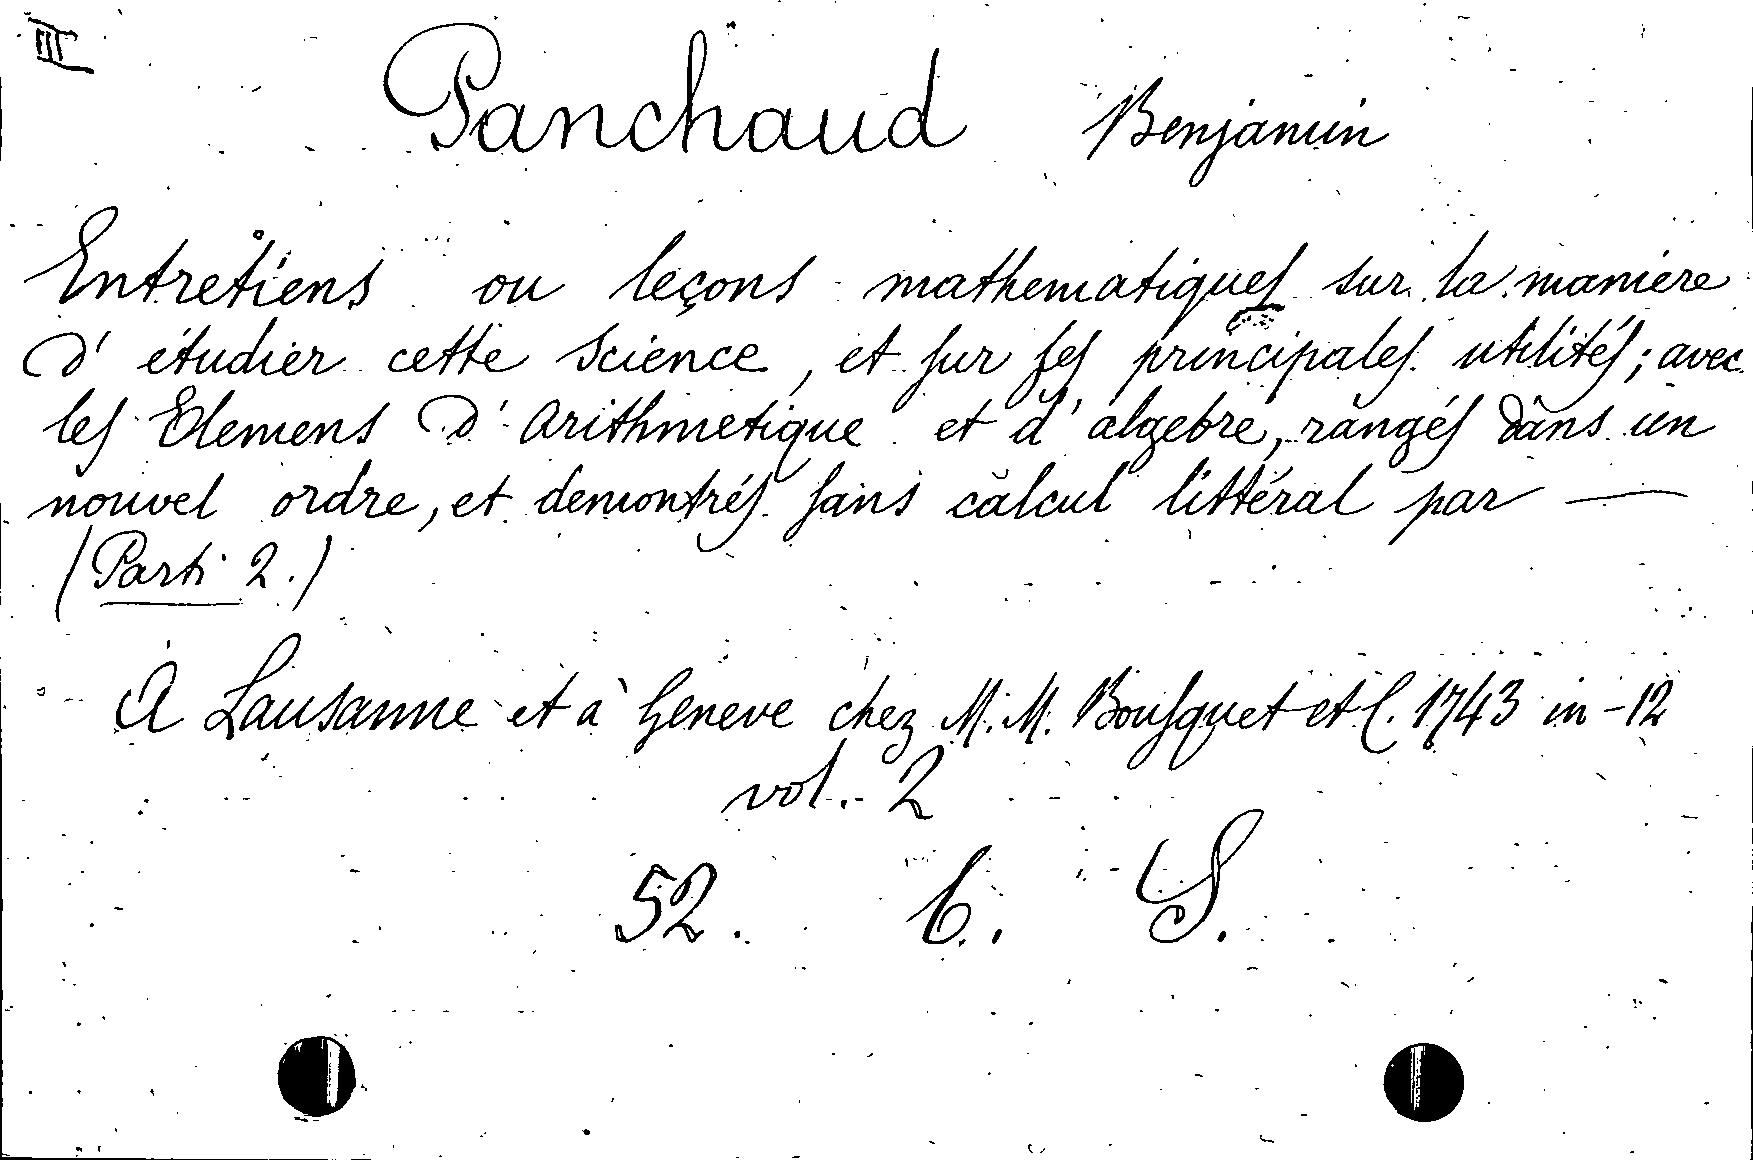 III
Panchaud Benjamin
Entretiens ou leçons mathematiques sur la maniere
d' étudier cette science, et sur ses principales utilités; avec
les Elemens d' arithmetique et d' algebre, rangés dans un
nouvel ordre, et demontrés sans calcul littéral par —
(Parti 2.)
A Lausanne et à Geneve chez M. M. Bousquet et C. 1743 in-12
vol. 2
52. C. S.